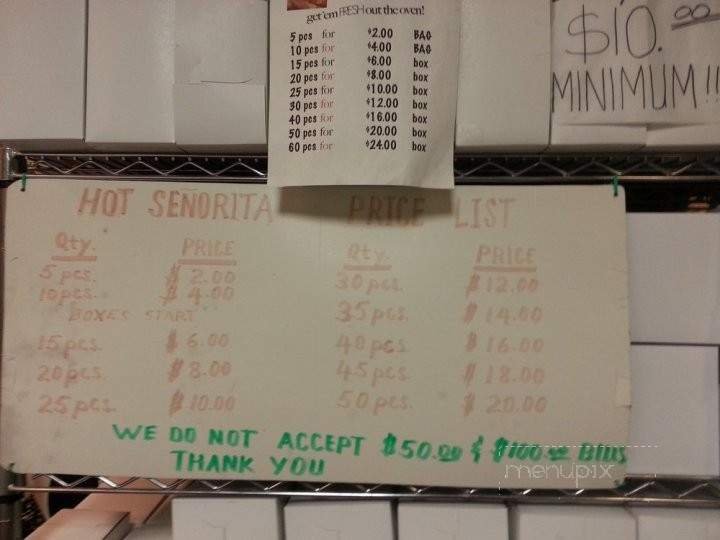 get'em FRESH out the oven!
5 pcs for $2.00 BAG
10 pcs for $4.00 BAG
15 pcs for $6.00 box
20 pcs for $8.00 box
25 pcs for $10.00 box
30 pcs for $12.00 box
40 pcs for $16.00 box
50 pcs for $20.00 box
60 pcs for $24.00 box
$10.00
MINIMUM!!
HOT SEÑORITA PRICE LIST
Qty. PRICE Qty. PRICE
5 pcs. $ 2.00 30 pcs. $ 12.00
10 pcs. $ 4.00
BOXES START
35 pcs. $ 14.00
15 pcs. $ 6.00 40 pcs. $ 16.00
20 pcs. $ 8.00 45 pcs. $ 18.00
25 pcs. $ 10.00 50 pcs. $ 20.00
WE DO NOT ACCEPT $50.00 & $100.00 Bills
THANK YOU
menupix